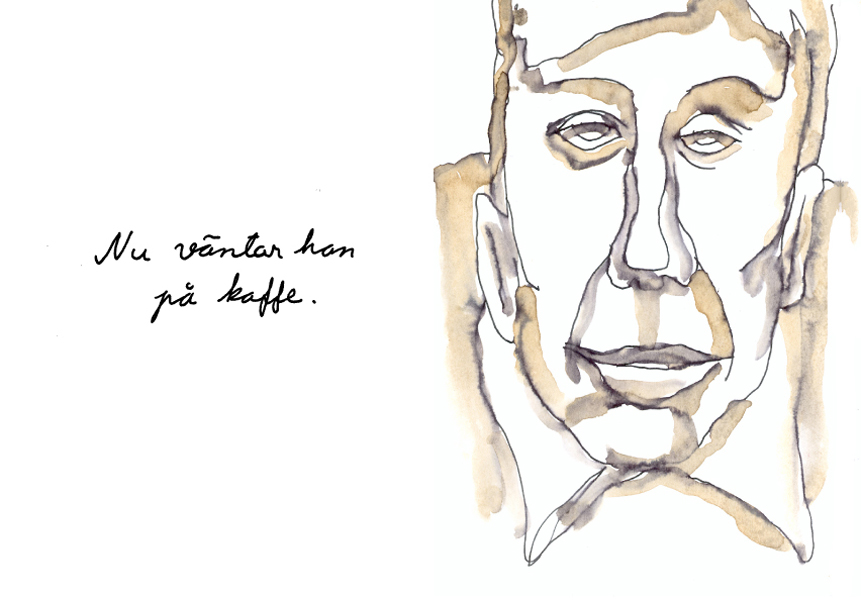 Nu väntar han
på kaffe.